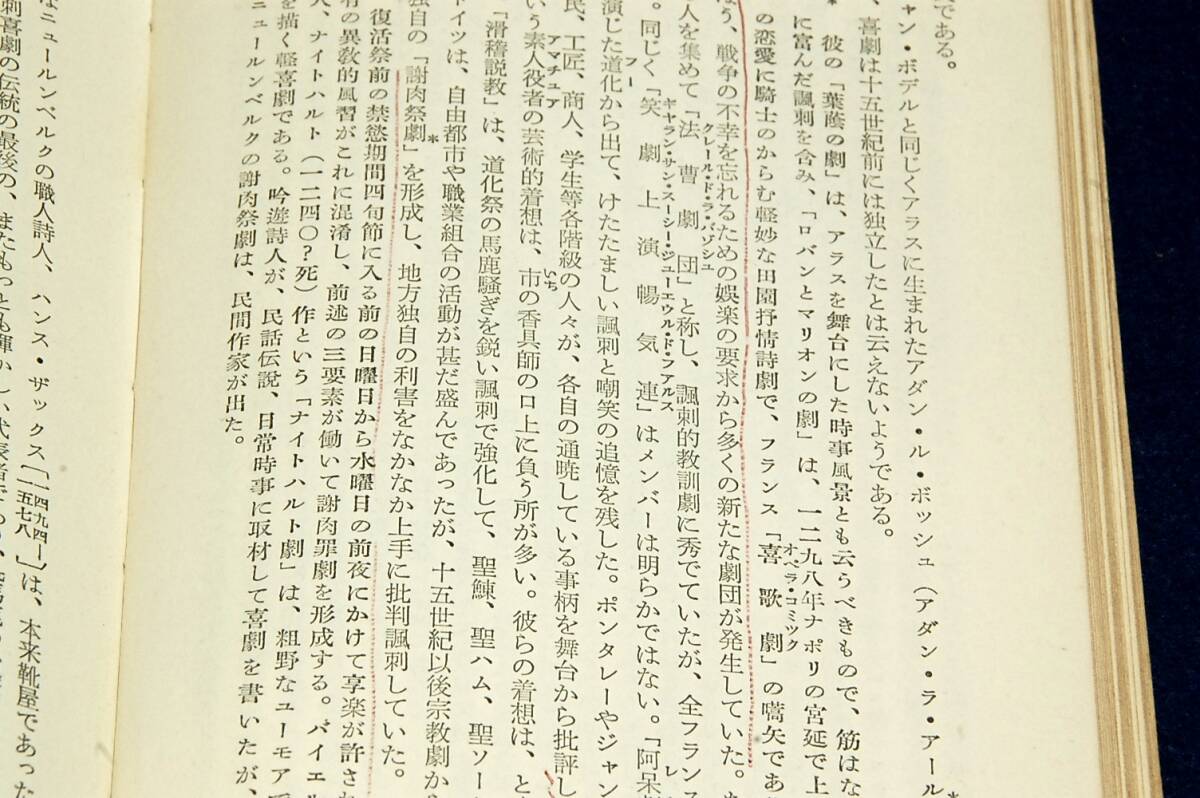 である。
ャン・ボデルと同じくアラスに生まれたアダン・ル・ボッシュ（アダン・ラ・アール
、喜劇は十五世紀前には独立したとは云えないようである。
彼の「葉蔭の劇」は、アラスを舞台にした時事風景とも云うべきもので、筋はな
に富んだ諷刺を含み、「ロバンとマリオンの劇」は、一二九八年ナポリの宮廷で上
の恋愛に騎士のからむ軽妙な田園抒情詩劇で、フランス「喜歌劇」の嚆矢であ
オペラ・コミック
う、戦争の不幸を忘れるための娯楽の要求から多くの新たな劇団が発生していた。
人を集めて「法曹劇団」と称し、諷刺的教訓劇に秀でていたが、全フランス
クレール・ド・ラ・バゾシュ
。同じく「笑劇上演暢気連」はメンバーは明らかではない。「阿呆
ギャラン・サン・スーシ・ジューエウル・ド・ファルス
演じた道化から出て、けたたましい諷刺と嘲笑の追憶を残した。ポンタレーやジャン
フー
民、工匠、商人、学生等各階級の人々が、各自の通暁している事柄を舞台から批評し
いう素人役者の芸術的着想は、市の香具師の口上に負う所が多い。彼らの着想は、と
アマチュア
いち
「滑稽説教」は、道化祭の馬鹿騒ぎを鋭い諷刺で強化して、聖鰊、聖ハム、聖ソー
ドイツは、自由都市や職業組合の活動が甚だ盛んであったが、十五世紀以後宗教劇か
独自の「謝肉祭劇」を形成し、地方独自の利害をなかなか上手に批判諷刺していた。
復活祭前の禁慾期間四旬節に入る前の日曜日から水曜日の前夜にかけて享楽が許され
有の異教的風習がこれに混淆し、前述の三要素が働いて謝肉罪劇を形成する。バイエル
人、ナイトハルト（一二四〇？死）作という「ナイトハルト劇」は、粗野なユーモアで
を描く軽喜劇である。吟遊詩人が、民話伝説、日常時事に取材して喜劇を書いたが、
ニュールンベルクの謝肉祭劇は、民間作家が出た。
なニュールンベルクの職人詩人、ハンス・ザックス〔一四九四—一五七八〕は、本来靴屋であった
刺喜劇の伝統の最後の、またもっとも輝かしい代表者であり、